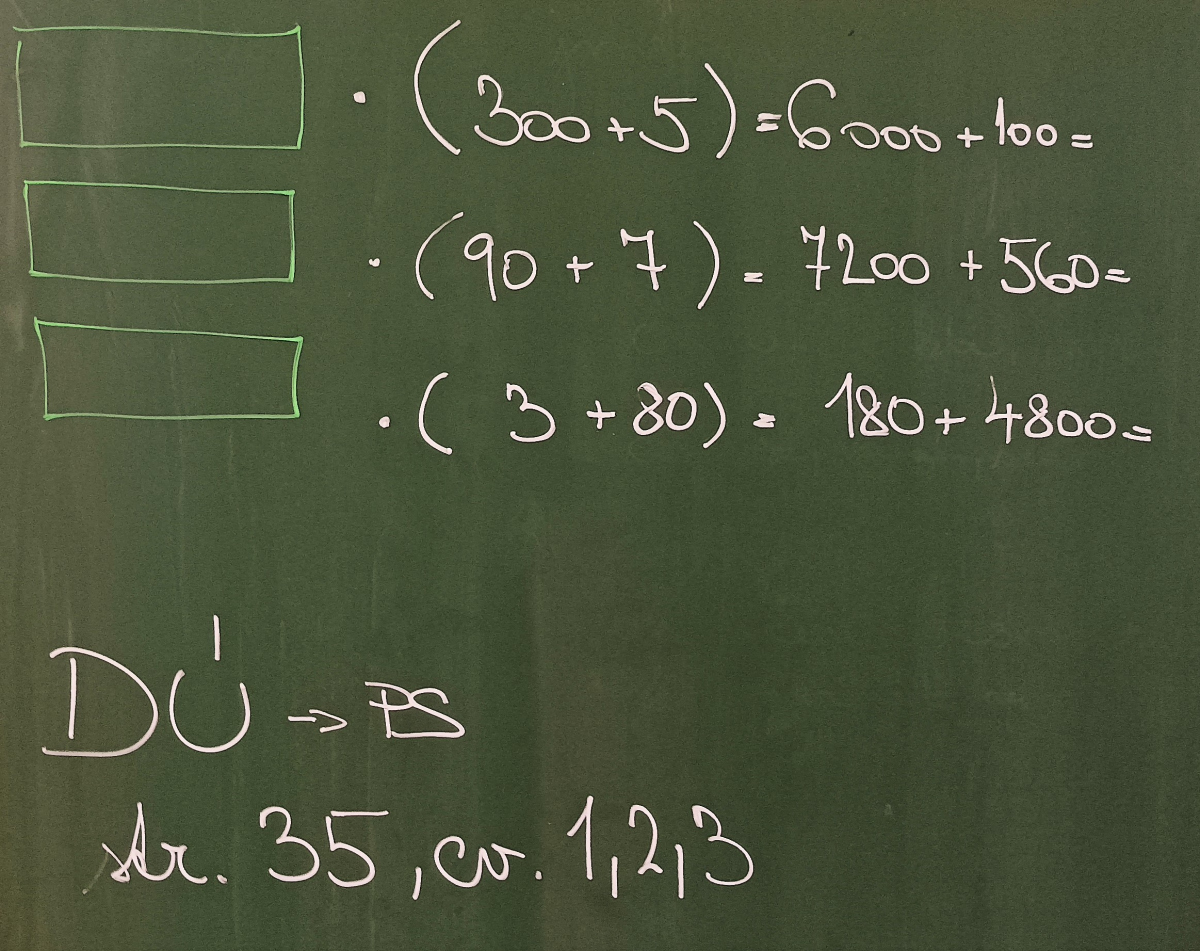 · (300+5)=6000+100=
· (90+7)=7200+560=
· (3+80)=180+4800=
DÚ → PS
str. 35, cv. 1,2,3